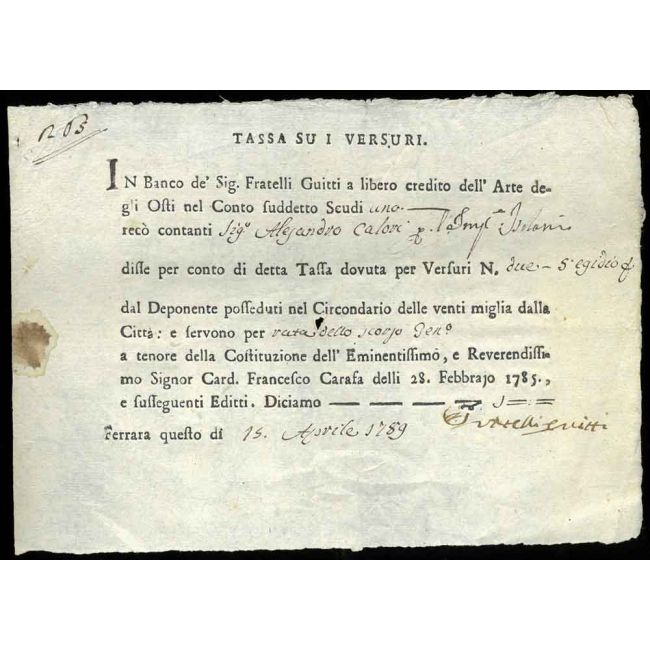 TASSA SU I VERSURI.
IN Banco de' Sig. Fratelli Guitti a libero credito dell' Arte de-
gli Osti nel Conto suddetto Scudi uno
recò contanti Sig.º Alejandro Calori
disse per conto di detta Tassa dovuta per Versuri N. due - S. egidio
dal Deponente posseduti nel Circondario delle venti miglia dalla
Città: e servono per rata dello scorso Gen.º
a tenore della Costituzione dell' Eminentissimo, e Reverendissi-
mo Signor Card. Francesco Carafa delli 28. Febbrajo 1785.,
e susseguenti Editti. Diciamo — — — — 1
Ferrara questo dì 15. Aprile 1789
Fratelli Guitti